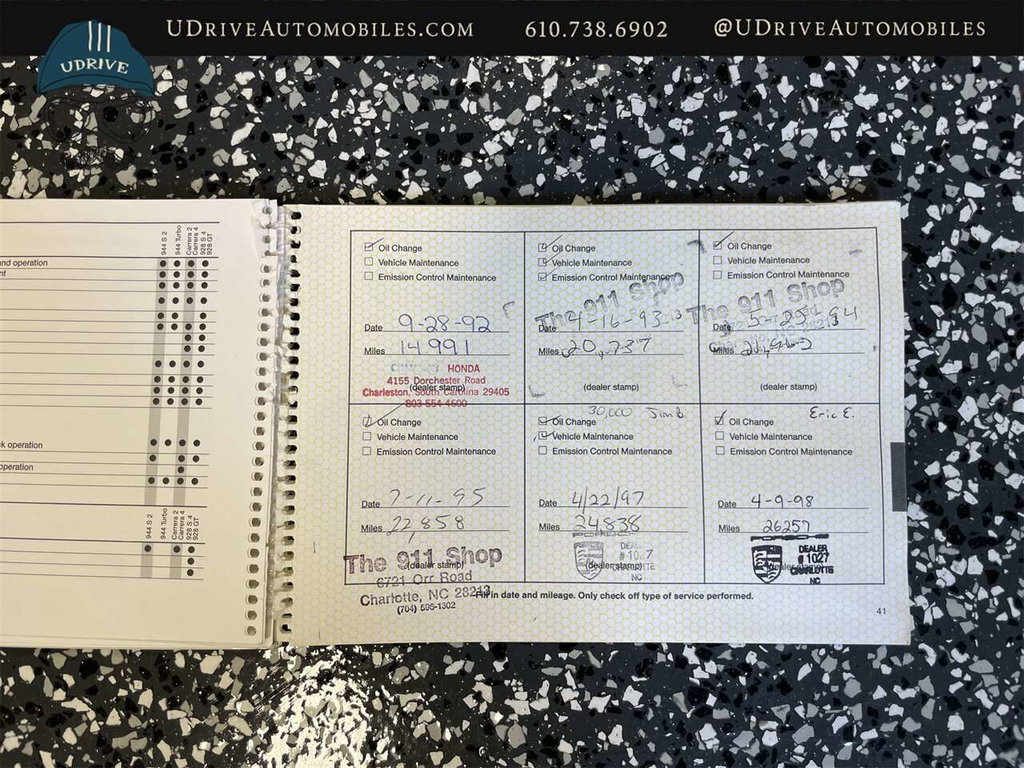 UDRIVEAUTOMOBILES.COM 610.738.6902 @UDRIVEAUTOMOBILES
UDRIVE
944 S 2
944 Turbo
Carrera 2
Carrera 4
928 S 4
928 GT
and operation
k operation
operation
944 S 2
944 Turbo
Carrera 2
Carrera 4
928 S 4
928 GT
Oil Change
Vehicle Maintenance
Emission Control Maintenance
Date 9-28-92
Miles 14,991
HONDA
4155 Dorchester Road
(dealer stamp)
Charleston, South Carolina 29405
803-554-4600
Oil Change
Vehicle Maintenance
Emission Control Maintenance
The 911 Shop
Date 4-16-93
Miles 20,737
(dealer stamp)
Oil Change
Vehicle Maintenance
Emission Control Maintenance
The 911 Shop
Date 5-25-94
Miles
(dealer stamp)
Oil Change
Vehicle Maintenance
Emission Control Maintenance
Date 7-11-95
Miles 22,858
The 911 Shop
(dealer stamp)
6721 Orr Road
Charlotte, NC 28213
(704) 596-1302
30,000 Jim B
Oil Change
Vehicle Maintenance
Emission Control Maintenance
Date 4/22/97
Miles 24838
(dealer stamp)
NC
Eric E.
Oil Change
Vehicle Maintenance
Emission Control Maintenance
Date 4-9-98
Miles 26257
DEALER
# 1027
CHARLOTTE
NC
Fill in date and mileage. Only check off type of service performed.
41